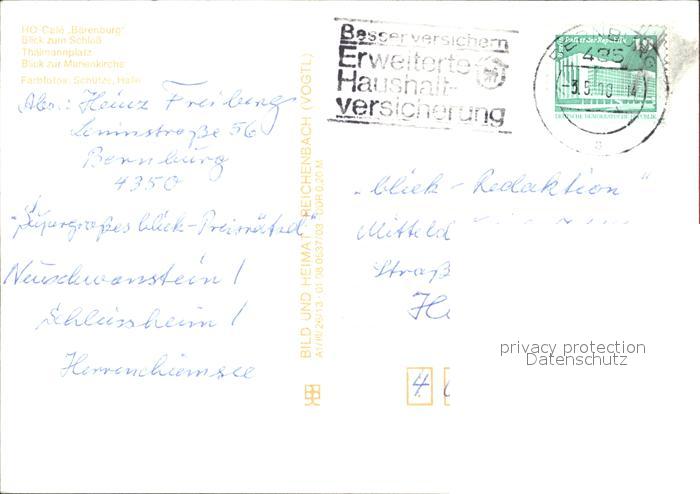 HO-Café „Bärenburg"
Blick zum Schloß
Thälmannplatz
Blick zur Marienkirche
Farbfotos: Schütze, Halle
Abs.: Heinz Freiburg
Leninstraße 56
Bernburg
4350
"Supergroßes blick-Preisrätsel"
Neuschwanstein /
Schleissheim /
Herrenchiemsee
BILD UND HEIMAT REICHENBACH (VOGTL)
A1/III/26/13 · 01 08 0537/03 DDR 0,20 M
Besser versichern
Erweiterte
Haushalt-
versicherung
BERNBURG
435
Palast der Republik 10
DEUTSCHE DEMOKRATISCHE REPUBLIK
„blick-Redaktion"
Mitteld
Straß
He
4
privacy protection
Datenschutz